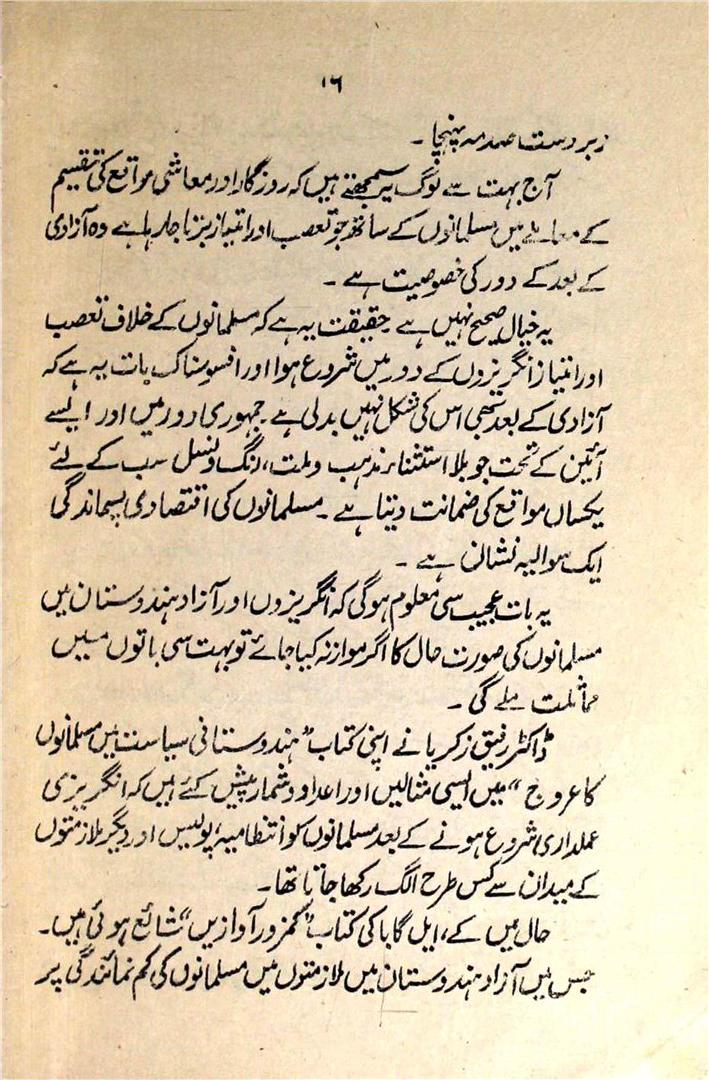 ۱۶
زبردست صدمہ پہنچا۔
آج بہت سے لوگ یہ سمجھتے ہیں کہ روزگار اور معاشی مواقع کی تقسیم
کے معاملے میں مسلمانوں کے ساتھ جو تعصب اور امتیاز برتا جا رہا ہے وہ آزادی
کے بعد کے دور کی خصوصیت ہے۔
یہ خیال صحیح نہیں ہے۔ حقیقت یہ ہے کہ مسلمانوں کے خلاف تعصب
اور امتیاز انگریزوں کے دور میں شروع ہوا اور افسوسناک بات یہ ہے کہ
آزادی کے بعد بھی اس کی شکل نہیں بدلی ہے۔ جمہوری دور میں اور ایسے
آئین کے تحت جو بلا استثناء مذہب و ملت، رنگ و نسل سب کے لئے
یکساں مواقع کی ضمانت دیتا ہے۔ مسلمانوں کی اقتصادی پسماندگی
ایک سوالیہ نشانی ہے۔
یہ بات عجیب سی معلوم ہوگی کہ انگریزوں اور آزاد ہندوستان میں
مسلمانوں کی صورت حال کا اگر موازنہ کیا جائے تو بہت سی باتوں میں
مماثلت ملے گی۔
ڈاکٹر رفیق زکریا نے اپنی کتاب "ہندوستانی سیاست میں مسلمانوں
کا عروج" میں ایسی مثالیں اور اعداد و شمار پیش کئے ہیں کہ انگریزی
عملداری شروع ہونے کے بعد مسلمانوں کو انتظامیہ، پولیس اور دیگر ملازمتوں
کے میدان سے کس طرح الگ رکھا جاتا تھا۔
حال میں کے، ایل گابا کی کتاب "کمزور آوازیں" شائع ہوئی ہیں۔
جس میں آزاد ہندوستان میں ملازمتوں میں مسلمانوں کی کم نمائندگی پر